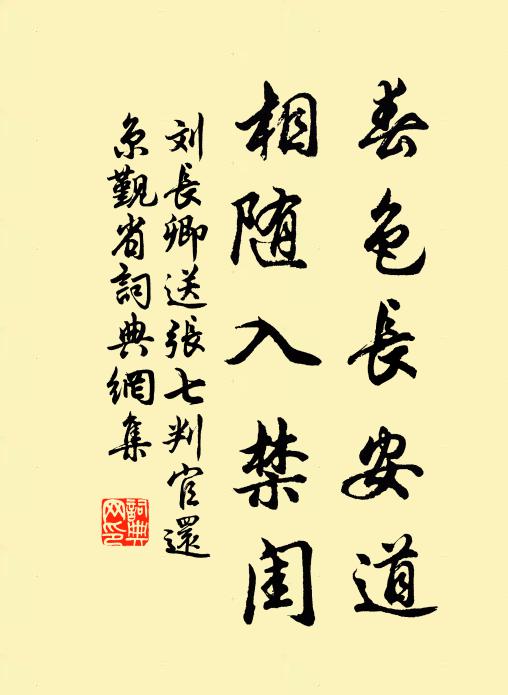 春色長安道
相随入禁闺
刘長卿送張七判官還
京觐省詞典網集
詞典
网印